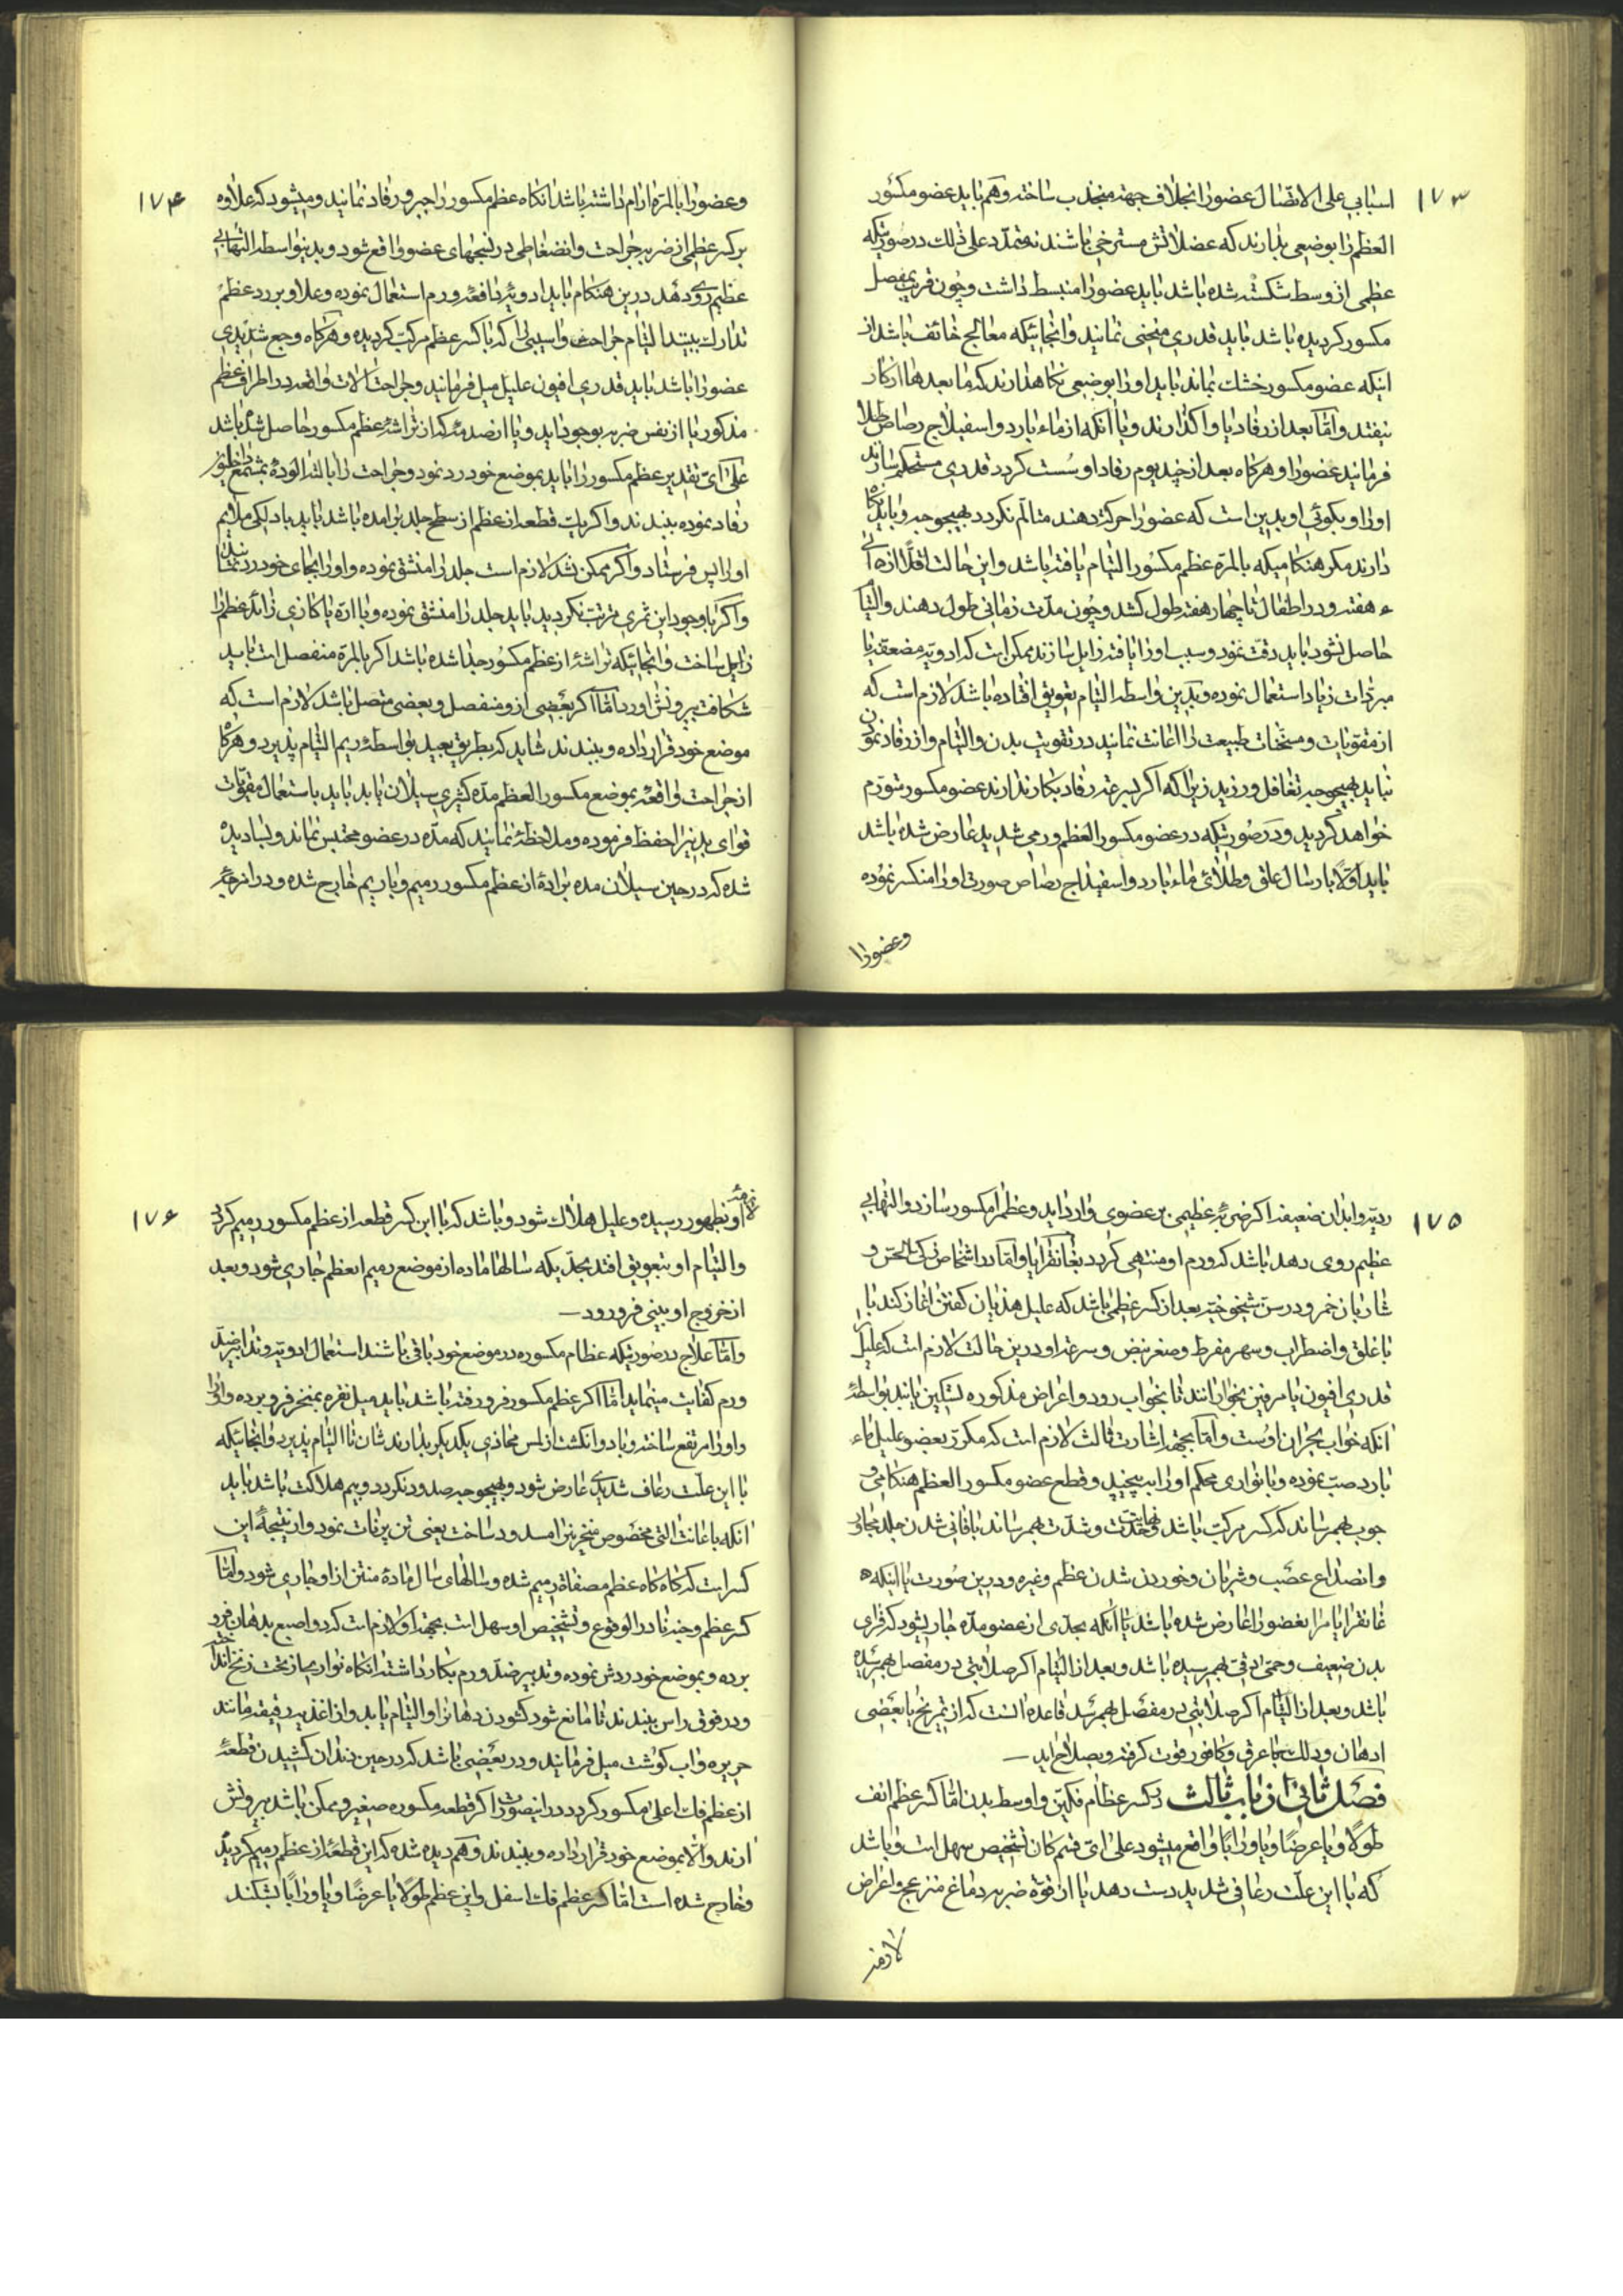 ۱۷۳
اسبابی علی الاتصال عضو را بخلاف جهة منجذب ساخته و هم باید عضو مکسور
العظم را بوضعی بدارند که عضلاتش مسترخی باشند نه متمدد علی ذلک در صورتیکه
عظمی از وسط شکسته شده باشد باید عضو را منبسط داشت و چون قریب بمفصل
مکسور کردیده باشد باید قدری منحنی نمایند و انجائیکه معالج خائف باشد از
اینکه عضو مکسور خشک بماند باید او را بوضعی نکاهدارند که ما بعدها از کار
نیفتد و اما بعد از رفاد یا واکذارند و یا آنکه از ماء بارد و اسفیداج رصاص طلا
فرمایند عضو را و هرکاه بعد از چند یوم رفاد او سست کردد قدری مستحکم سازند
اولی او بکوئی او بدین است که عضو را حرکت دهند متالم نکردد بهیچوجه و باید نکاه
دارند مکر هنکامیکه بالمره عظم مکسور التیام یافته باشد و این حالت اقلا از
هفته و در اطفال تا چهار هفته طول کشد و چون مدت زمانی طول دهند و التیام
حاصل نشود باید دقت نمود و سبب او را یافته زایل سازند ممکن است که ادویه مضعفه یا
مبردات زیاد استعمال نموده و بدین واسطه التیام بتعویق افتاده باشد لازم است که
از مقویات و مسخنات طبیعت را اعانت نمایند در تقویت بدن و التیام و از رفاد نمودن
نباید بهیچوجه تغافل ورزید زیرا که اکر بسرعت رفاد بکار ندارند عضو مکسور متورم
خواهد کردید و در صورتیکه در عضو مکسور العظم ورمی شدید عارض شده باشد
باید اولا بارسال علق و طلائی ماء بارد و اسفیداج رصاص صورت او را منکسر نموده
وعضورا
۱۷۴
وعضورا بالمره ارام داشته باشد انکاه عظم مکسور را جبر و رفاد نمایند و میشود که علاوه
بر کسر عظمی از ضربه جراحت و انضغاطی در نسجهای عضو واقع شود و بدینواسطه التهابی
عظیم روی دهد درین هنکام باید ادویه دافعه ورم استعمال نموده و علاوه بر رد عظم
تدارک ببیند التیام جراحت و اسیبی را که با کسر عظم مرکب کردیده و هرکاه وجع شدیدی
عضو را باشد باید قدری افیون علیل میل فرمایند و جراحت آلات واقعه در اطراف عظم
مذکور یا از نفس ضربه بوجود آید و یا از صدمه که از تراشه عظم مکسور حاصل شده باشد
علی ای تقدیر عظم مکسور را باید بموضع خود رد نمود و جراحت را
رفاد نموده ببندند و اکر یک قطعه از عظم از سطح جلد برامده باشد باید باد لکی ملایم
او را پس فرستاد و اکر ممکن نشد لازم است جلد را منشق نموده و او را بجای خود رد نمایند
و اکر با وجود این ثمری مترتب نکردید باید جلد را منشق نموده و با اره یا کازی زائده عظم را
زایل ساخت و انجائیکه تراشه از عظم مکسور جدا شده باشد اکر بالمره منفصل است باید
شکافت بیرونش اورد اما اکر بعضی از و منفصل و بعضی متصل باشد لازم است که
موضع خود قرار داده و ببندند شاید که بطریق بعید بواسطه ریم التیام پذیرد و هرکاه
از جراحت واقعه بموضع مکسور العظم مده کثیری سیلان یابد باید باستعمال مقویات
قوای بدنیرا حفظ فرموده و ملاحظه نمایند که مده در عضو محتبس نماند و بسا دیده
شده که در حین سیلان مده براده از عظم مکسور رمیم و با ریم خارج شده و در امزجه
۱۷۵
ردیه و ابدان ضعیفه اکر ضربه عظیمی بر عضوی وارد آید و عظم را مکسور سازد و التهابی
عظیم روی دهد باشد که ورم او منتهی کردد بغانقرایا و اما در اشخاص ذکی الحس و
شاربان خمر و در سن شیخوخیت بعد از کسر عظمی باشد که علیل هذیان کفتن اغاز کند یا
با غلق و اضطراب و سهر مفرط و صغر نبض و سرعت او درین حالت لازم است که علیل را
قدری افیون یا مرفین بخورانند تا بخواب رود و اعراض مذکوره تسکین یابند بواسطه
انکه خواب بحران اوست و اما بجهت اشارت ثالث لازم است که مکرر بعضو علیل ماء
بارد صب نموده و با نواری محکم او را به پیچید و قطع عضو مکسور العظم هنکامی و
جوب بهم رساند که کسر مرکب باشد و نهایت حدت و شدت بهم رساند با فانی شدن جلد محاذی
و انصداع عصب و شریان و خورد شدن عظم و غیره و درین صورت یا اینکه
غانقرایا مر انعضو را عارض شده باشد یا آنکه بحدی از عضو مده جاری شود که قوای
بدن ضعیف و حمی دقی بهم رسیده باشد و بعد از التیام اکر صلابتی در مفصل بهم رسیده
باشد و بعد از التیام اکر صلابتی در مفصل بهم رسد قاعده انست که از تمریخ با بعضی
ادهان و دلک با عرقی و کافور قوت کرفته و بصلاح اید
فصل ثانی از باب ثالث در کسر عظام فکین و اوسط بدن اما کسر عظم انف
طولا و یا عرضا و یا ورابا واقع میشود علی ای قسم کان تشخیص سهل است و باشد
که با این علت رعافی شدید دست دهد یا از قوة ضربه دماغ منزعج و اعراض
لازمه
۱۷۶
لازمه او بظهور رسیده و علیل هلاک شود و باشد که با این کسر قطعه از عظم مکسور رمیم کردد
و التیام او بتعویق افتد بحدیکه سالها ماده از موضع رمیم العظم جاری شود و بعد
از خروج او بینی فرو رود
و اما علاج در صورتیکه عظام مکسوره در موضع خود باقی باشند استعمال ادویه و تدابیر ضد
ورم کفایت مینماید اما اکر عظم مکسور فرو رفته باشد باید میل نقره بمنخر فرو برده و انرا
و او را مرتفع ساخته و با دو انکشت از لمس محاذی یکدیکر بدارند شان تا التیام پذیرد و انجائیکه
با این علت رعاف شدیدی عارض شود و بهیچوجه مسدود نکردد و بیم هلاکت باشد باید
انکه با عانت التی مخصوص منخرین را مسدود ساخت یعنی تن پر نات نمود و از نتیجه این
کسر است که کاه کاه عظم مصفاة رمیم شده و سالهای سال ماده منتن از او جاری شود و اما
کسر عظم وجنه نادر الوقوع و تشخیص او سهل است بجهت اولا لازم است که دو اصبع بدهان فرو
برده و بموضع خود ردش نموده و تدابیر ضد ورم بکار داشته انکاه نواری از تحت زنخ انداخته
و در فوق راس ببندند تا مانع شود کشودن دهانرا و التیام یابد و از اغذیه رقیقه مانند
حریره و اب کوشت میل فرمایند و در بعضی باشد که در حین دندان کشیدن قطعه
از عظم فک اعلی مکسور کردد در اینصورت اکر قطعه مکسوره صغیر و ممکن باشد بیرونش
ارند و الا بموضع خود قرار داده و ببندند و هم دیده شده که این قطعه از عظم رمیم کردیده
و خارج شده است اما کسر عظم فک اسفل و این عظم طولا یا عرضا و یا ورابا بشکند